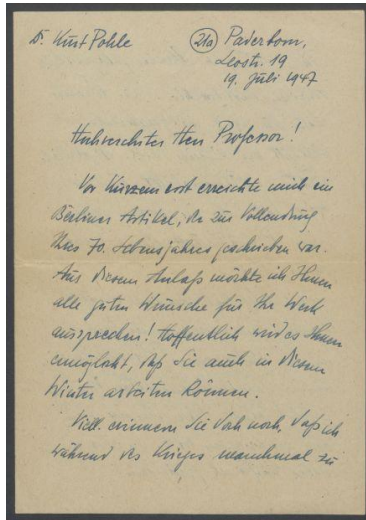 Dr. Kurt Pohle
(21a) Paderborn,
Leostr. 19
19. Juli 1947
Hochverehrter Herr Professor!
Vor Kurzem erst erreichte mich ein
Berliner Artikel, der zur Vollendung
Ihres 70. Lebensjahres geschrieben war.
Aus diesem Anlaß möchte ich Ihnen
alle guten Wünsche für Ihr Werk
aussprechen! Hoffentlich wird es Ihnen
ermöglicht, daß Sie auch in diesem
Winter arbeiten können.
Viell. erinnern Sie sich noch, daß ich
während des Krieges manchmal zu